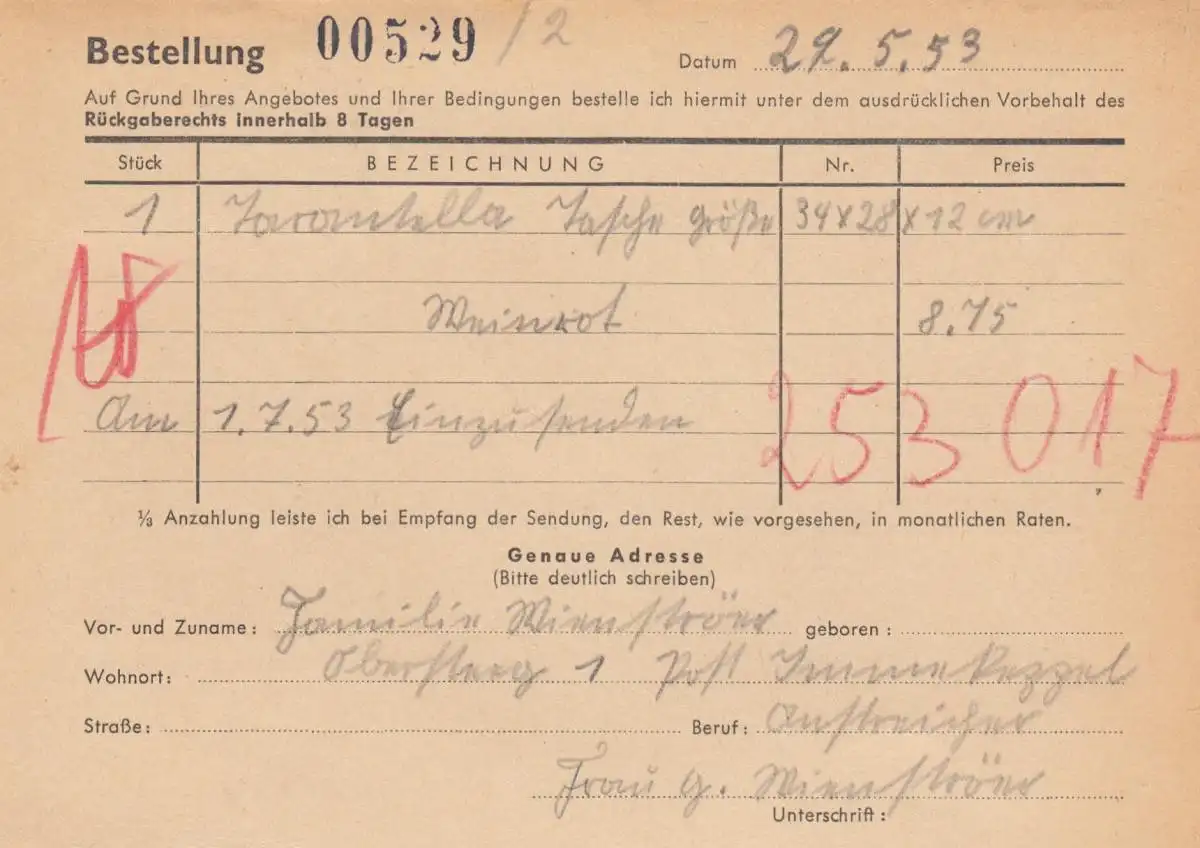 Bestellung 00529 /2 Datum 29.5.53
Auf Grund Ihres Angebotes und Ihrer Bedingungen bestelle ich hiermit unter dem ausdrücklichen Vorbehalt des
Rückgaberechts innerhalb 8 Tagen
Stück BEZEICHNUNG Nr. Preis
1 Tarantella Tasche größe 34x28x12 cm
Weinrot 8.75
Am 1.7.53 Einzusenden
253 017
⅓ Anzahlung leiste ich bei Empfang der Sendung, den Rest, wie vorgesehen, in monatlichen Raten.
Genaue Adresse
(Bitte deutlich schreiben)
Vor- und Zuname: Familie Wienströer geboren:
Wohnort: Obersteeg 1 Post Immekeppel
Straße: Beruf: Anstreicher
Frau G. Wienströer
Unterschrift: